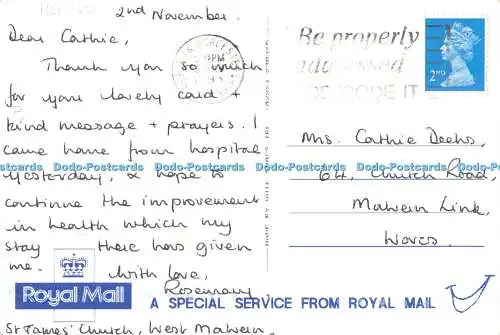 2nd November.
Dear Cathie,
Thank you so much
for your lovely card +
kind message + prayers. I
came home from hospital
yesterday, & hope to
continue the improvement
in health which my
stay there has given
me. With love,
Rosemary
St James' Church, West Malvern.
Be properly
addressed
POSTCODE IT
2ND
Mrs. Cathie Deehs,
64, Church Road,
Malvern Link,
Worcs.
Royal Mail
A SPECIAL SERVICE FROM ROYAL MAIL
Dodo-Postcards Dodo-Postcards Dodo-Postcards Dodo-Postcards Dodo-Postcards Dodo-Postcards